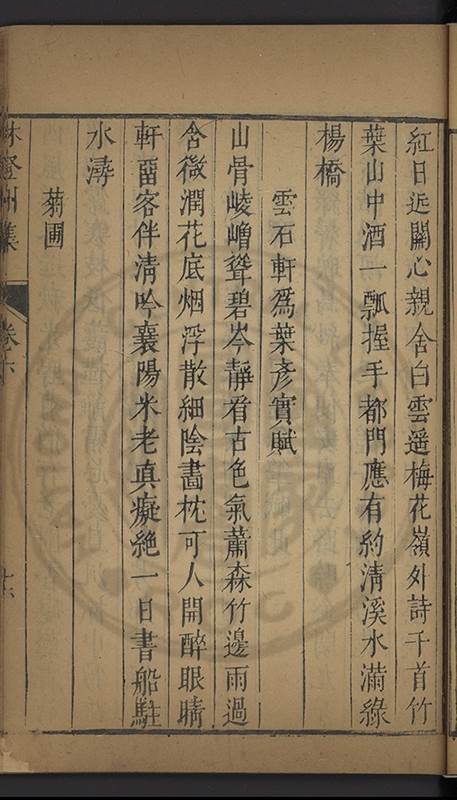 紅日近關心親舍白雲遥梅花嶺外詩千首竹
葉山中酒一瓢握手都門應有約清溪水滿綠
楊橋
雲石軒爲葉彥實賦
山骨崚嶒聳碧岑靜看古色氣蕭森竹邊雨過
含微潤花底烟浮散細陰畵枕可人開醉眼晴
軒畱客伴清吟襄陽米老真癡絶一日書船駐
水潯
菊圃
林登州集
卷六